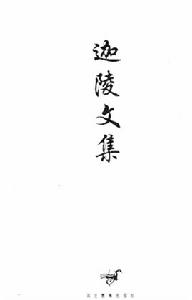 迦陵文集